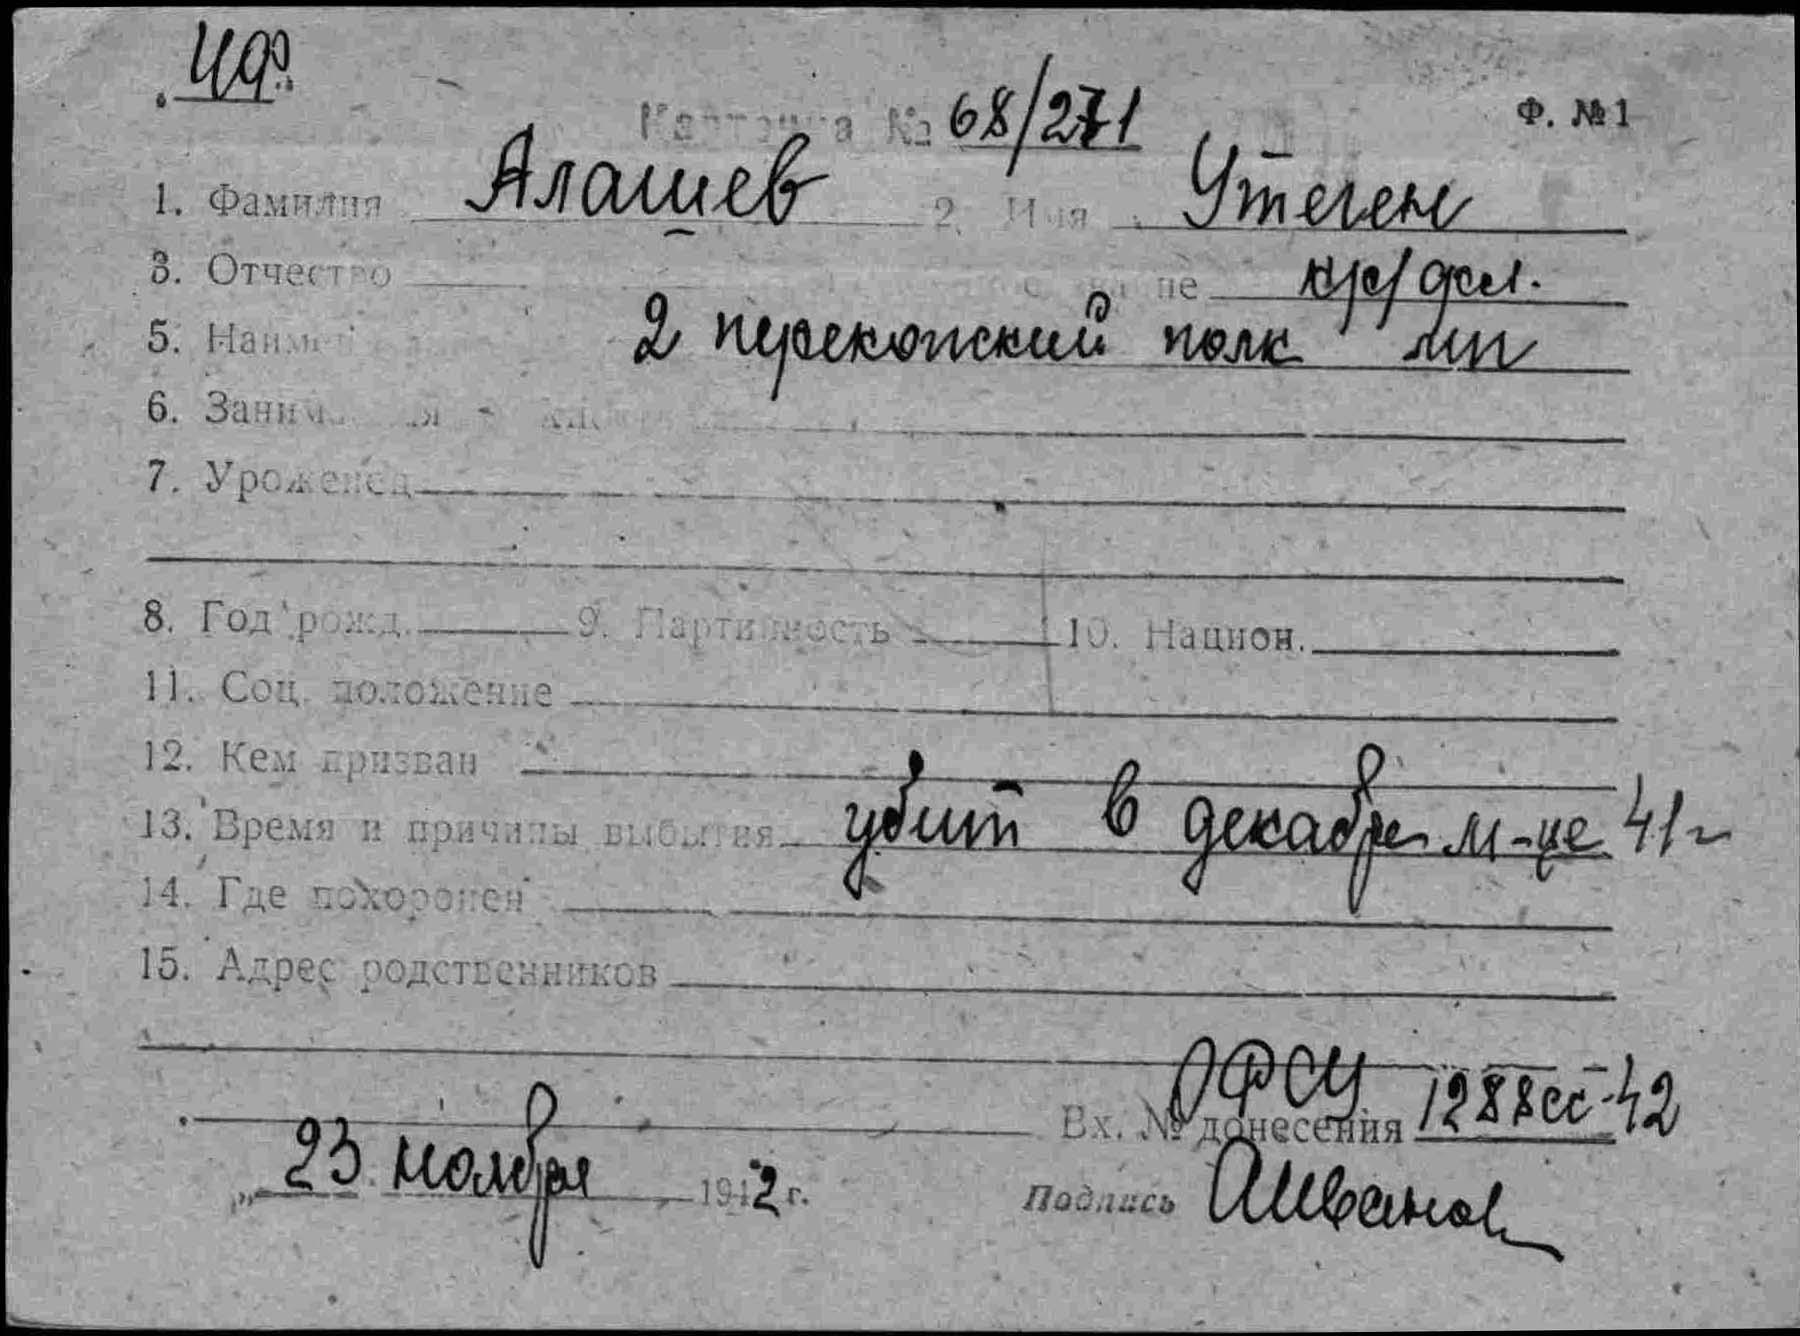 ЧФ.
Карточка № 68/271
Ф. №1
1. Фамилия Алашев 2. Имя Утеген
3. Отчество
5. Наимен 2 перекопский полк мп
6. Занимаемая
7. Уроженец
8. Год рожд. 9. Партийность 10. Национ.
11. Соц. положение
12. Кем призван
13. Время и причины выбытия убит в декабре м-це 41 г
14. Где похоронен
15. Адрес родственников
Вх. № донесения 1288сс-42
„ 23 ноября 1942 г.
Подпись